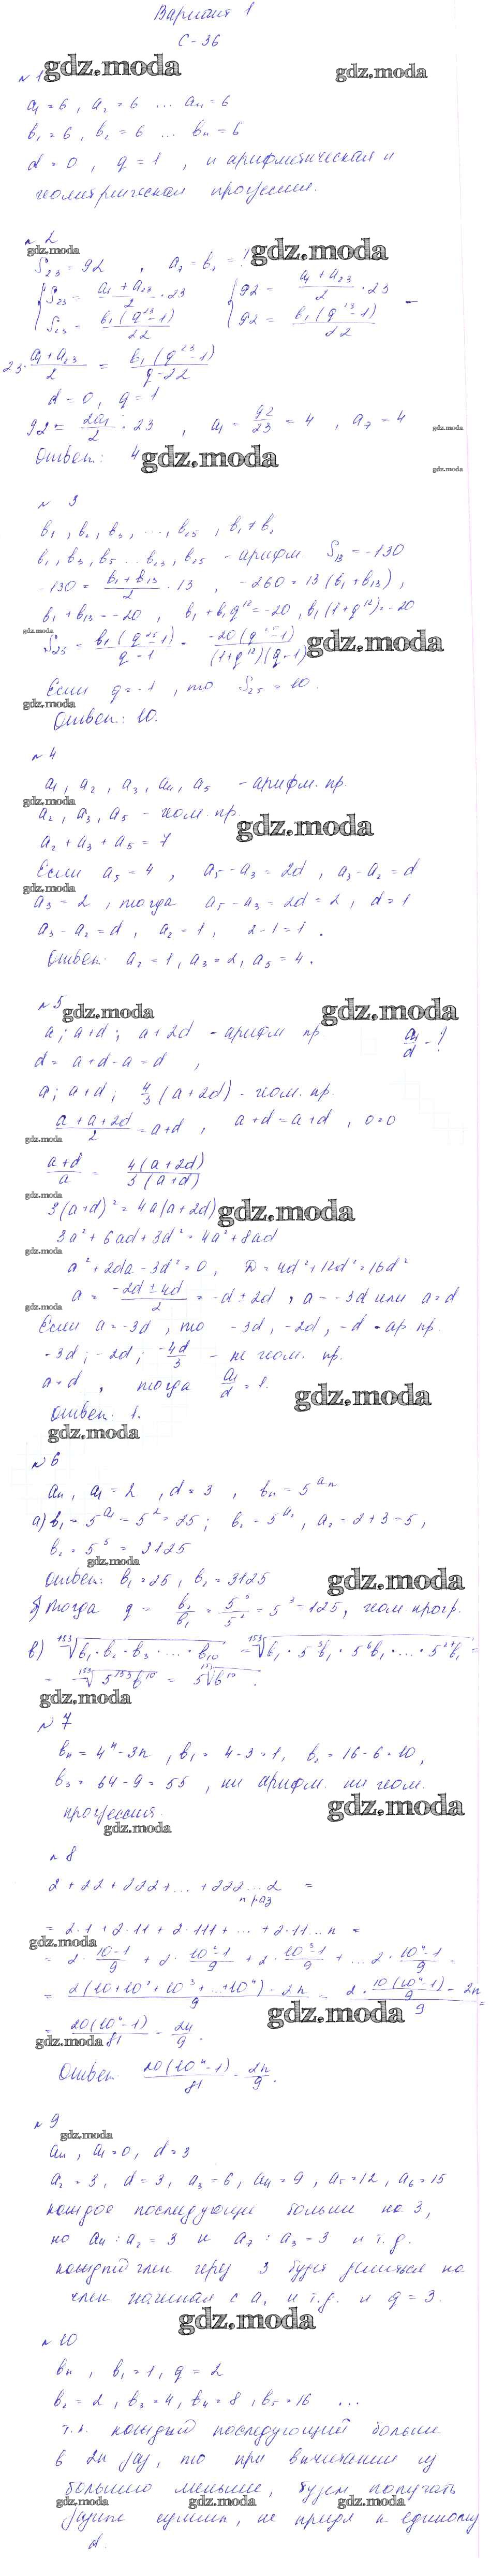 Вариант 1
С-36
№1
gdz.moda
gdz.moda
a₁ = 6, a₂ = 6 ... aₙ = 6
b₁ = 6, b₂ = 6 ... bₙ = 6
d = 0, q = 1, и арифметическая и
геометрическая прогрессия.
№2
gdz.moda
gdz.moda
S₂₃ = 92, a₇ = b₇ = ?
{ S₂₃ = (a₁ + a₂₃)/2 · 23 { 92 = (a₁ + a₂₃)/2 · 23
{ S₂₃ = b₁(q²³-1)/22 { 92 = b₁(q²³-1)/22
23 · (a₁ + a₂₃)/2 = b₁(q²³-1)/(q-22)
d = 0, q = 1
92 = 2a₁/2 · 23, a₁ = 92/23 = 4, a₇ = 4
gdz.moda
Ответ: 4
gdz.moda
gdz.moda
№ 3
b₁, b₂, b₃, ..., b₂₅, b₁ ≠ b₂
b₁, b₃, b₅ ... b₂₃, b₂₅ - арифм. S₁₃ = -130
-130 = (b₁ + b₁₃)/2 · 13, -260 = 13(b₁ + b₁₃),
b₁ + b₁₃ = -20, b₁ + b₁q¹² = -20, b₁(1+q¹²) = -20
gdz.moda
S₂₅ = b₁(q²⁵-1)/(q-1) = -20(q²⁵-1)/((1+q¹²)(q-1))
gdz.moda
Если q = -1, то S₂₅ = 10.
gdz.moda
Ответ: 10.
№4
a₁, a₂, a₃, a₄, a₅ - арифм. пр.
gdz.moda
a₂, a₃, a₅ - геом. пр.
gdz.moda
a₂ + a₃ + a₅ = 7
Если a₅ = 4, a₅ - a₃ = 2d, a₃ - a₂ = d
gdz.moda
a₃ = 2, тогда a₅ - a₃ = 2d = 2, d = 1
a₃ - a₂ = d, a₂ = 1, 2-1 = 1.
Ответ: a₂ = 1, a₃ = 2, a₅ = 4.
№5
gdz.moda
gdz.moda
a; a+d; a+2d - арифм пр a₁/d - ?
d = a+d-a = d,
a; a+d; 4/3(a+2d) - геом. пр.
(a+a+2d)/2 = a+d, a+d = a+d, 0=0
gdz.moda
(a+d)/a = 4(a+2d)/3(a+d)
gdz.moda
3(a+d)² = 4a(a+2d)
gdz.moda
3a² + 6ad + 3d² = 4a² + 8ad
gdz.moda
a² + 2da - 3d² = 0, D = 4d² + 12d² = 16d²
a = (-2d ± 4d)/2 = -d ± 2d, a = -3d или a = d
gdz.moda
Если a = -3d, то -3d, -2d, -d - ар пр.
-3d; -2d; -4d/3 - не геом. пр.
a = d, тогда a₁/d = 1.
gdz.moda
Ответ: 1.
gdz.moda
№6
aₙ, a₁ = 2, d = 3, bₙ = 5^aₙ
а) b₁ = 5^a₁ = 5² = 25; b₂ = 5^a₂, a₂ = 2+3 = 5,
b₂ = 5⁵ = 3125
gdz.moda
Ответ: b₁ = 25, b₂ = 3125
gdz.moda
б) Тогда q = b₂/b₁ = 5⁵/5² = 5³ = 125, геом прогр.
в) ¹⁵³√(b₁·b₂·b₃·...·b₁₀) = ¹⁵³√(b₁·5³b₁·5⁶b₁·...·5²⁷b₁) =
= ¹⁵³√(5¹⁵³b¹⁰) = 5 ¹⁵³√b¹⁰.
gdz.moda
№ 7
bₙ = 4ⁿ - 3n, b₁ = 4-3 = 1, b₂ = 16-6 = 10,
b₃ = 64-9 = 55, ни арифм. ни геом.
прогрессия.
gdz.moda
gdz.moda
№ 8
2 + 22 + 222 + ... + 222...2 =
n раз
= 2·1 + 2·11 + 2·111 + ... + 2·11...n =
gdz.moda
= 2·(10-1)/9 + 2·(10²-1)/9 + 2·(10³-1)/9 + ... 2·(10ⁿ-1)/9 =
= (2(10+10²+10³+...+10ⁿ) - 2n)/9 = (2·10(10ⁿ-1)/9 - 2n)/9 =
gdz.moda
= 20(10ⁿ-1)/81 - 2n/9.
gdz.moda
Ответ 20(10ⁿ-1)/81 - 2n/9.
№ 9
gdz.moda
aₙ, a₁ = 0, d = 3
a₂ = 3, d = 3, a₃ = 6, a₄ = 9, a₅ = 12, a₆ = 15
каждое последующие больши на 3,
но a₄ : a₂ = 3 и a₇ : a₃ = 3 и т.д.
каждый член через 3 будет делиться на
член начиная с a, и т.д. и q = 3.
gdz.moda
№ 10
bₙ, b₁ = 1, q = 2
b₂ = 2, b₃ = 4, b₄ = 8, b₅ = 16 ...
т.к. каждый последующий больши
в 2n раз, то при вычитании из
большего меньшие, будем получать
gdz.moda
gdz.moda
gdz.moda
разные суммы, не придя к единому
d.